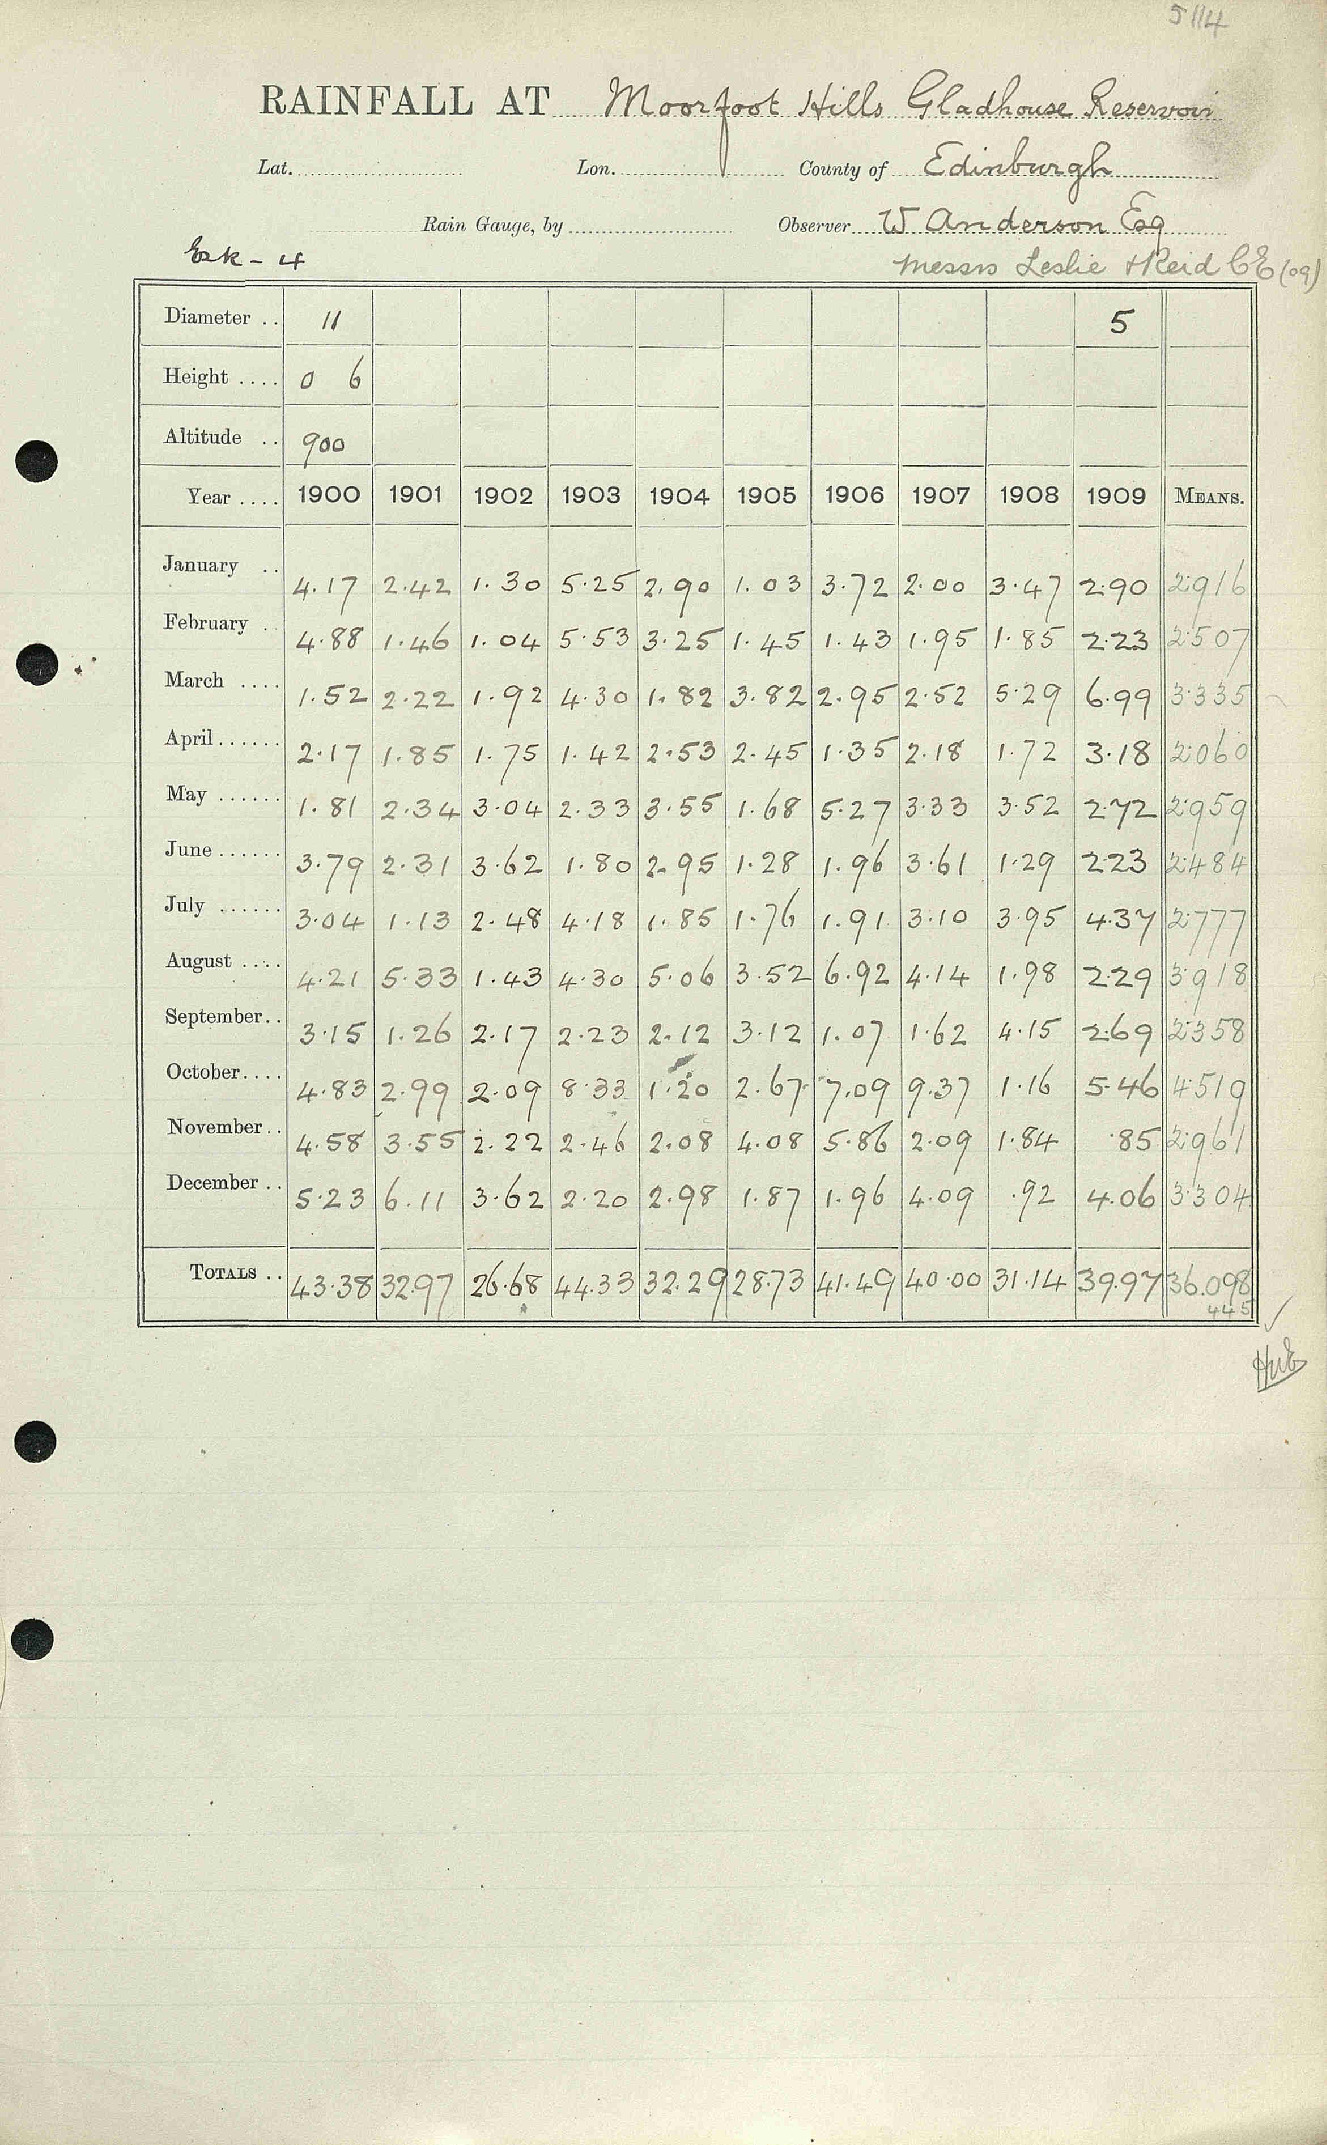 5114
RAINFALL AT Moorfoot Hills Gladhouse Reservoir
Lat. Lon. County of Edinburgh
Rain Gauge, by Observer W Anderson Esq
Esk - 4 Messrs Leslie & Reid CE (09)
Diameter .. 11 5
Height .... 0 6
Altitude .. 900
Year .... 1900 1901 1902 1903 1904 1905 1906 1907 1908 1909 MEANS.
January .. 4.17 2.42 1.30 5.25 2.90 1.03 3.72 2.00 3.47 2.90 2.916
February .. 4.88 1.46 1.04 5.53 3.25 1.45 1.43 1.95 1.85 2.23 2.507
March .... 1.52 2.22 1.92 4.30 1.82 3.82 2.95 2.52 5.29 6.99 3.335
April...... 2.17 1.85 1.75 1.42 2.53 2.45 1.35 2.18 1.72 3.18 2.060
May ...... 1.81 2.34 3.04 2.33 3.55 1.68 5.27 3.33 3.52 2.72 2.959
June...... 3.79 2.31 3.62 1.80 2.95 1.28 1.96 3.61 1.29 2.23 2.484
July ...... 3.04 1.13 2.48 4.18 1.85 1.76 1.91 3.10 3.95 4.37 2.777
August .... 4.21 5.33 1.43 4.30 5.06 3.52 6.92 4.14 1.98 2.29 3.918
September.. 3.15 1.26 2.17 2.23 2.12 3.12 1.07 1.62 4.15 2.69 2.358
October.... 4.83 2.99 2.09 8.33 1.20 2.67 7.09 9.37 1.16 5.46 4.519
November.. 4.58 3.55 2.22 2.46 2.08 4.08 5.86 2.09 1.84 .85 2.961
December .. 5.23 6.11 3.62 2.20 2.98 1.87 1.96 4.09 .92 4.06 3.304
TOTALS .. 43.38 32.97 26.68 44.33 32.29 28.73 41.49 40.00 31.14 39.97 36.098
445